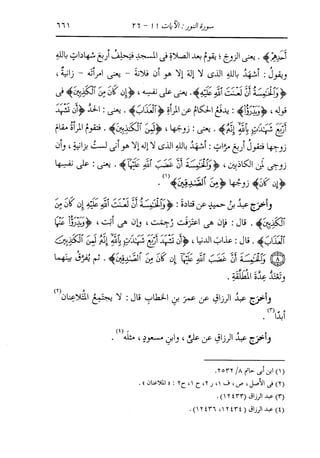 سورة النور: الآيات ١١ - ٢٦ ٦٦١
. يعنى الزوج؛ يقومُ بعد الصلاةِ فى المسجدِ فيَحْلِفُ أربعَ شهاداتٍ باللهِ
ويقولُ: أشهَدُ باللهِ الذى لا إلهَ إلا هو أن فلانةَ - يعنى امرأته - زانيةٌ،
﴿وَالْخَامِسَةُ أَنَّ لَعْنَتَ اللَّهِ عَلَيْهِ﴾. يعنى: على نفسِه، ﴿إِن كَانَ مِنَ الْكَاذِبِينَ﴾ فى
قوله، ﴿وَيَدْرَؤُا﴾: يدفعُ الحكامُ عن المرأةِ ﴿الْعَذَابَ﴾. يعنى: الحدَّ ﴿أَن تَشْهَدَ
أَرْبَعَ شَهَادَاتٍ بِاللَّهِ إِنَّهُ﴾. يعنى: زوجَها، ﴿لَمِنَ الْكَاذِبِينَ﴾. فتقومُ المرأةُ مقامَ
زوجِها فتقولُ أربعَ مرَّاتٍ: أشهدُ باللهِ الذى لا إلهَ إلا هو أنى لستُ بزانيةٍ، وأن
زوجى لمن الكاذبين، ﴿وَالْخَامِسَةَ أَنَّ غَضَبَ اللَّهِ عَلَيْهَا﴾. يعنى: على نفسِها
﴿إِن كَانَ﴾ زوجُها ﴿مِنَ الصَّادِقِينَ﴾(١).
وأخرَج عبدُ بنُ حميدٍ عن قتادةَ: ﴿وَالْخَامِسَةُ أَنَّ لَعْنَتَ اللَّهِ عَلَيْهِ إِن كَانَ مِنَ
الْكَاذِبِينَ﴾. قال: فإن هى اعترَفت رُجِمت، وإن هى أبَت، ﴿وَيَدْرَؤُا عَنْهَا
الْعَذَابَ﴾. قال: عذابَ الدنيا، ﴿أَن تَشْهَدَ أَرْبَعَ شَهَادَاتٍ بِاللَّهِ إِنَّهُ لَمِنَ الْكَاذِبِينَ
٨ وَالْخَامِسَةَ أَنَّ غَضَبَ اللَّهِ عَلَيْهَا إِن كَانَ مِنَ الصَّادِقِينَ﴾. ثم يُفرَّقُ بينَهما
وتَعْتَدُّ عِدَّةَ المطلَّقةِ.
وأخرَج عبدُ الرزاقِ عن عمرَ بنِ الخطابِ قال: لا يجتمِعُ المُتَلاعِنان(٢)
أبدًا(٣).
وأخرَج عبدُ الرزاقِ عن علىٍّ، وابنِ مسعودٍ، مثلَه(٤).
(١) ابن أبى حاتم ٨/ ٢٥٣٢.
(٢) فى الأصل، ص، ف ١، ر ٢، ح ١، ح ٢: «الملاعنان».
(٣) عبد الرزاق (١٢٤٣٣).
(٤) عبد الرزاق (١٢٤٣٤، ١٢٤٣٦).